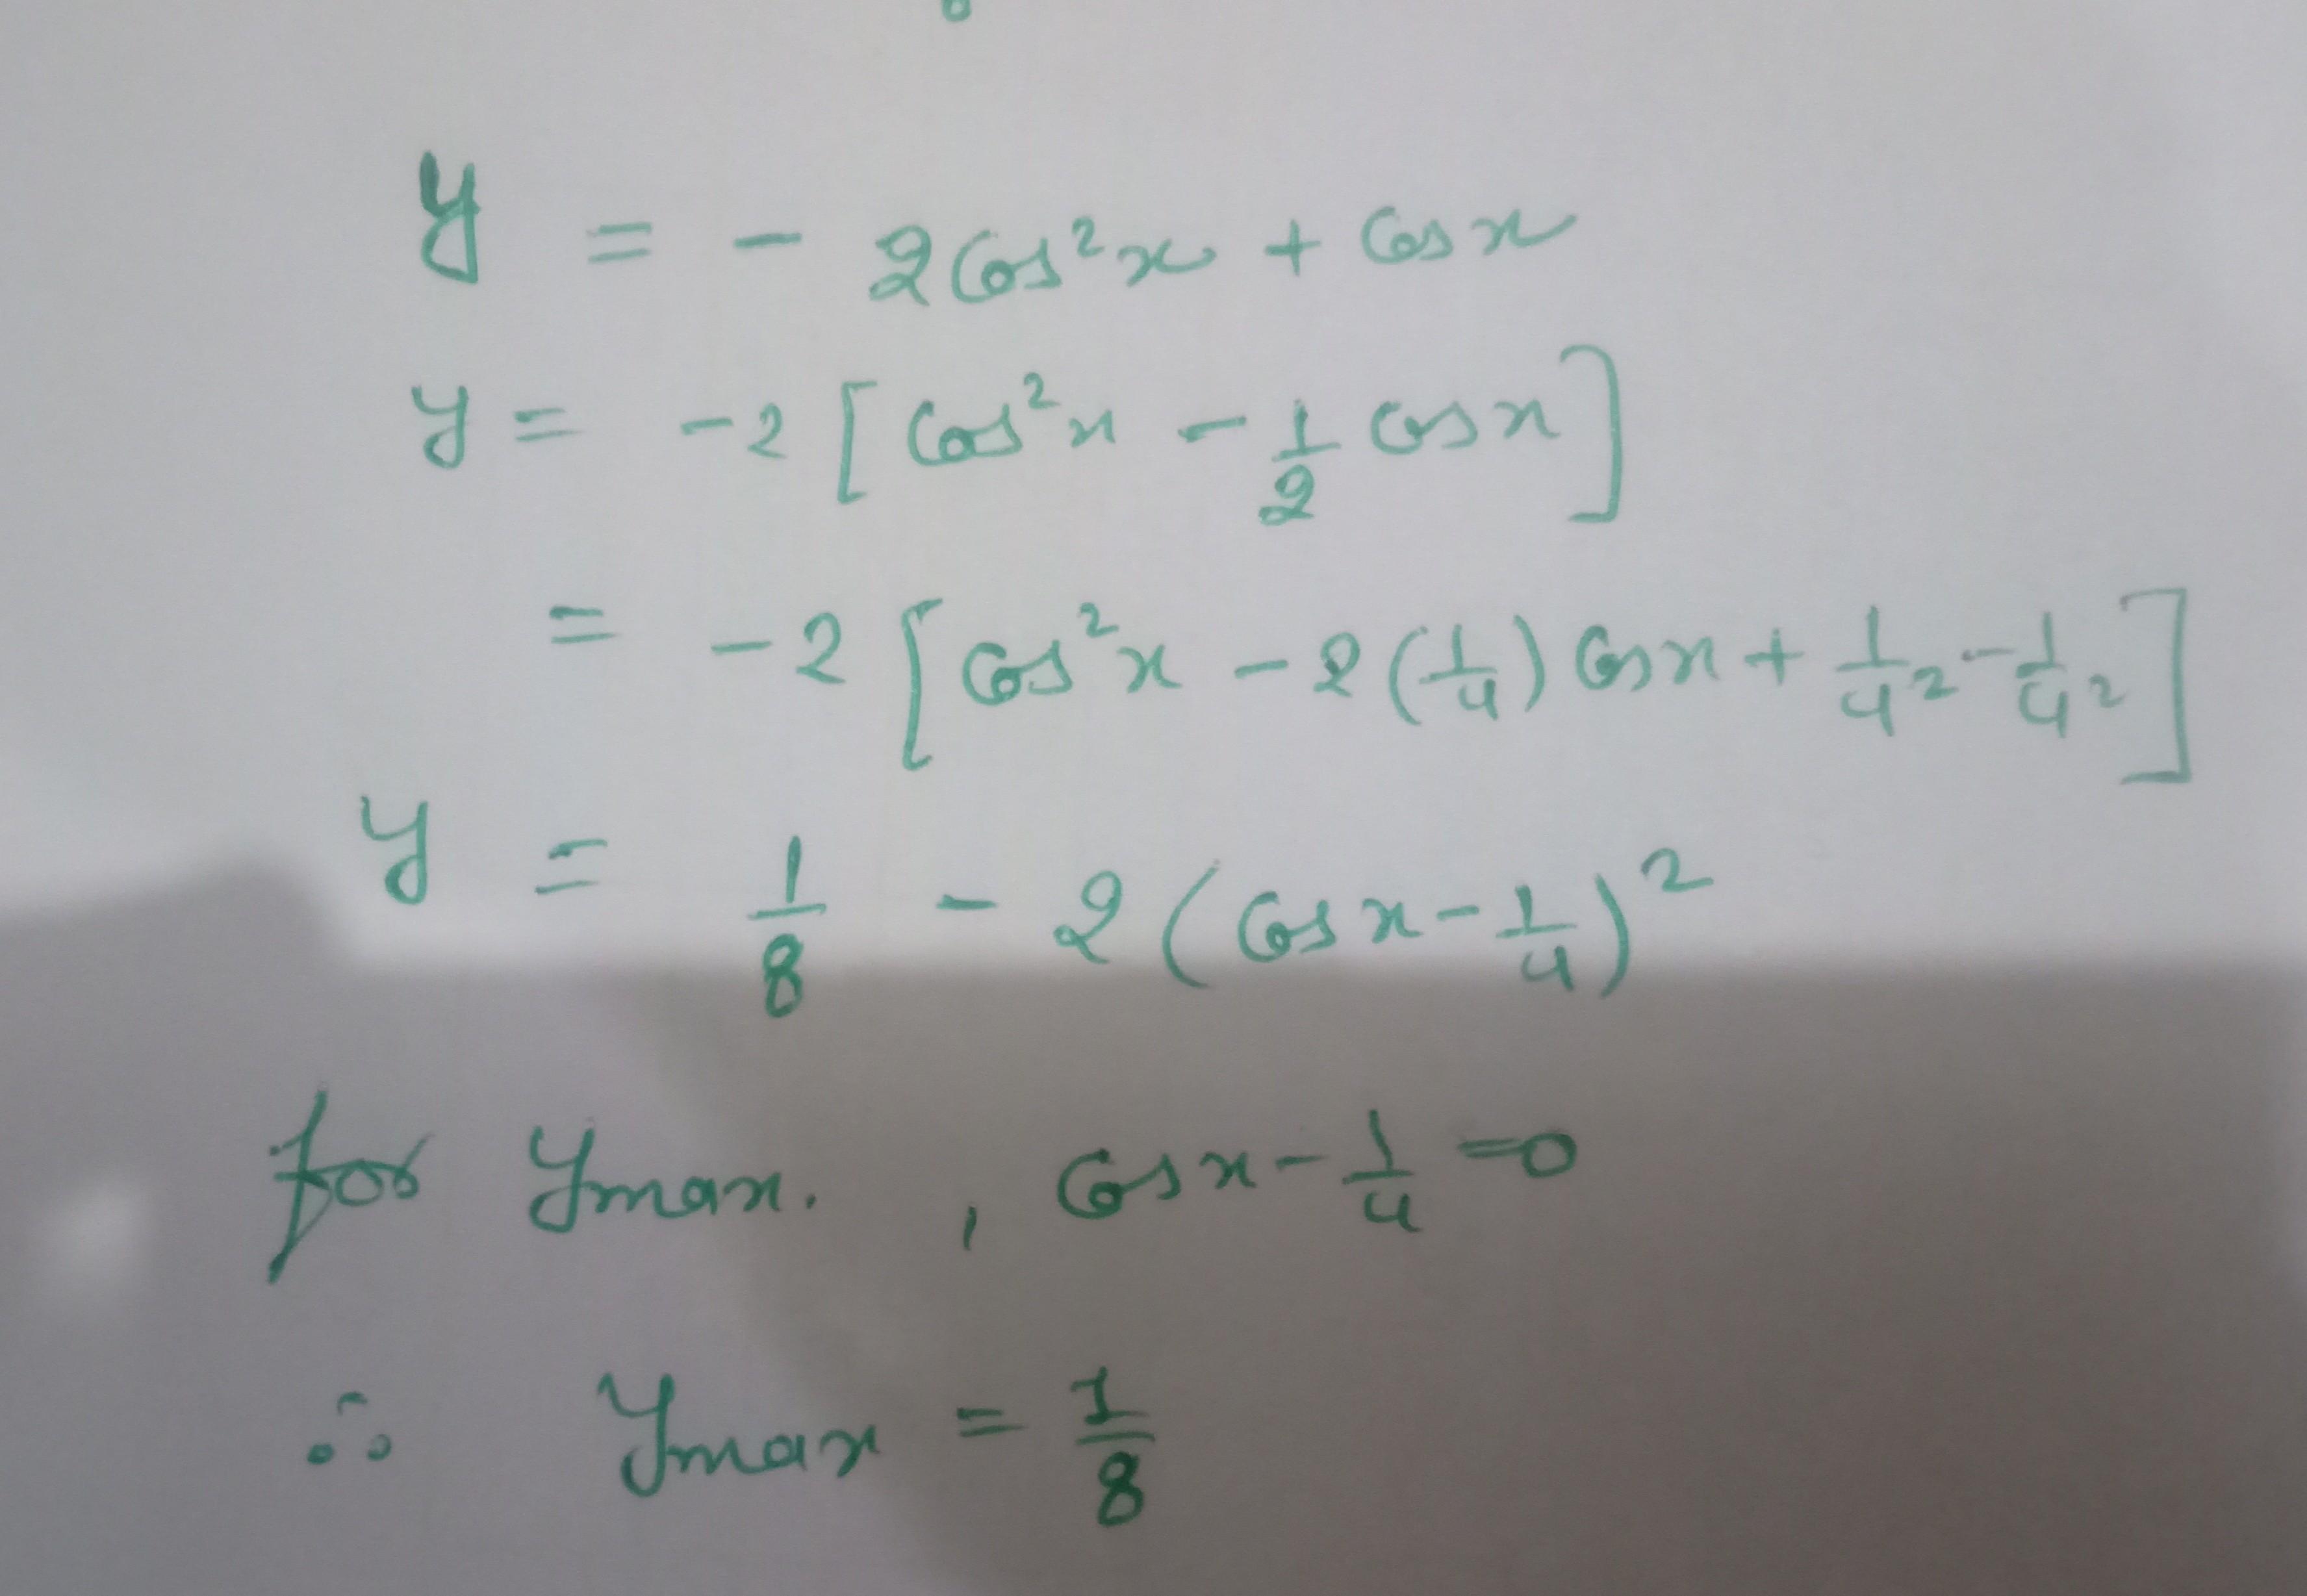 y = - 2 Cos²x + Cos x
y = -2 [ Cos²x - 1/2 Cos x ]
= -2 [ Cos²x - 2 (1/4) Cos x + 1/4² - 1/4² ]
y = 1/8 - 2 ( Cos x - 1/4 )²
for ymax. , Cos x - 1/4 = 0
∴ ymax = 1/8